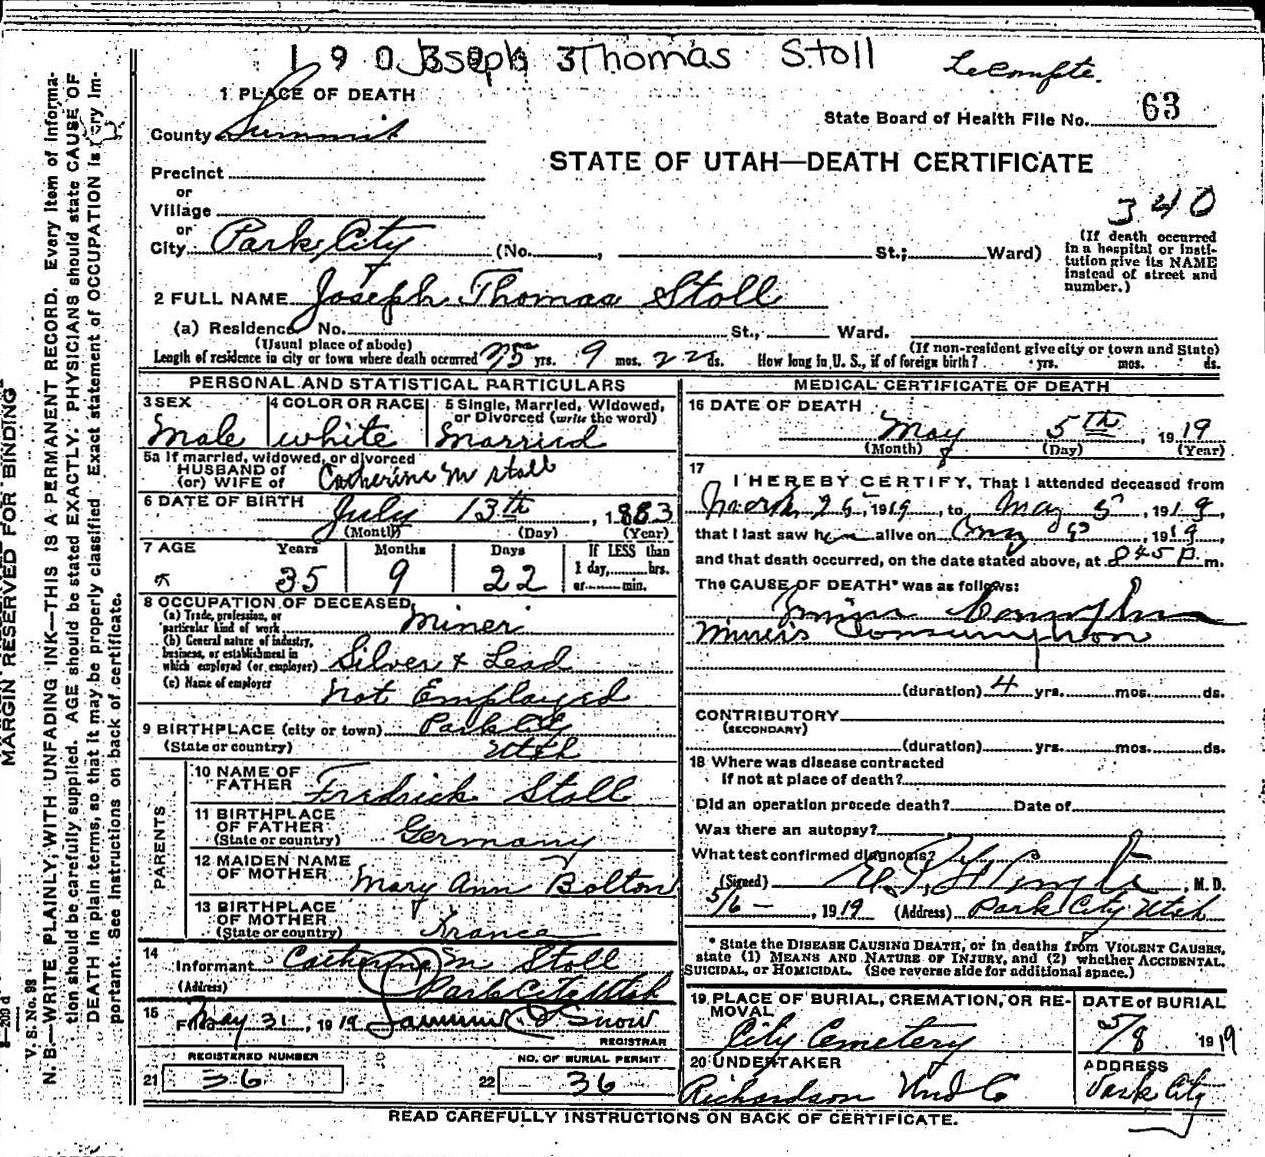 1903043
Joseph Thomas Stoll
LeCompte.
1 PLACE OF DEATH
County Summit
State Board of Health File No. 63
STATE OF UTAH—DEATH CERTIFICATE
Precinct
or
Village
or
City Park City (No. , St.; Ward)
340
(If death occurred in a hospital or institution give its NAME instead of street and number.)
2 FULL NAME Joseph Thomas Stoll
(a) Residence No. St., Ward.
(Usual place of abode) (If non-resident give city or town and State)
Length of residence in city or town where death occurred yrs. 9 mos. 22 ds. How long in U. S., if of foreign birth? yrs. mos. ds.
PERSONAL AND STATISTICAL PARTICULARS
3 SEX Male
4 COLOR OR RACE white
5 Single, Married, Widowed, or Divorced (write the word) Married
5a If married, widowed, or divorced
HUSBAND of
(or) WIFE of Catherine M Stoll
6 DATE OF BIRTH July 13th, 1883
(Month) (Day) (Year)
7 AGE Years 35 Months 9 Days 22 If LESS than 1 day, hrs. or min.
8 OCCUPATION OF DECEASED
(a) Trade, profession, or particular kind of work Miner
(b) General nature of industry, business, or establishment in which employed (or employer) Silver & Lead
(c) Name of employer Not Employed
9 BIRTHPLACE (city or town) Park City
(State or country) Utah
PARENTS
10 NAME OF FATHER Fredrick Stoll
11 BIRTHPLACE OF FATHER (State or country) Germany
12 MAIDEN NAME OF MOTHER Mary Ann Bolton
13 BIRTHPLACE OF MOTHER (State or country) France
14 Informant Catherine M Stoll
(Address) Park City Utah
15 Filed May 31, 1919 Snow
REGISTRAR
REGISTERED NUMBER
21 36
NO. OF BURIAL PERMIT
22 36
MEDICAL CERTIFICATE OF DEATH
16 DATE OF DEATH
May 5th, 1919
(Month) (Day) (Year)
17 I HEREBY CERTIFY, That I attended deceased from
March 26, 1919, to May 5, 1919,
that I last saw him alive on May 5, 1919,
and that death occurred, on the date stated above, at 845 P. m.
The CAUSE OF DEATH* was as follows:
Miners Consumption
(duration) 4 yrs. mos. ds.
CONTRIBUTORY
(SECONDARY)
(duration) yrs. mos. ds.
18 Where was disease contracted
if not at place of death?
Did an operation precede death? Date of
Was there an autopsy?
What test confirmed diagnosis?
(Signed) , M. D.
5/6 - , 1919 (Address) Park City Utah
* State the DISEASE CAUSING DEATH, or in deaths from VIOLENT CAUSES,
state (1) MEANS AND NATURE OF INJURY, and (2) whether ACCIDENTAL,
SUICIDAL, or HOMICIDAL. (See reverse side for additional space.)
19 PLACE OF BURIAL, CREMATION, OR REMOVAL
City Cemetery
DATE of BURIAL
5/8 1919
20 UNDERTAKER
Richardson Und Co
ADDRESS
Park City
READ CAREFULLY INSTRUCTIONS ON BACK OF CERTIFICATE.
MARGIN RESERVED FOR BINDING
V. S. No. 98
N. B.—WRITE PLAINLY, WITH UNFADING INK—THIS IS A PERMANENT RECORD. Every item of information should be carefully supplied. AGE should be stated EXACTLY. PHYSICIANS should state CAUSE OF DEATH in plain terms, so that it may be properly classified. Exact statement of OCCUPATION is very important. See instructions on back of certificate.